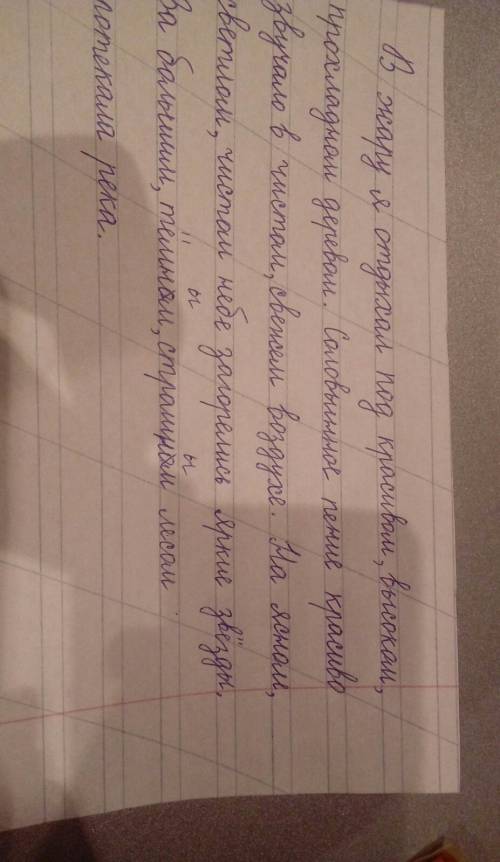 В жару я отдыхал под красивом, высоком,
прохладном деревом. Соловьинное пение красиво
звучало в чистом, свежем воздухе. На ясноме,
светлом, чистом небе загорелись яркие звёзды.
За большим, тёмным, страшным лесом
протекала река.